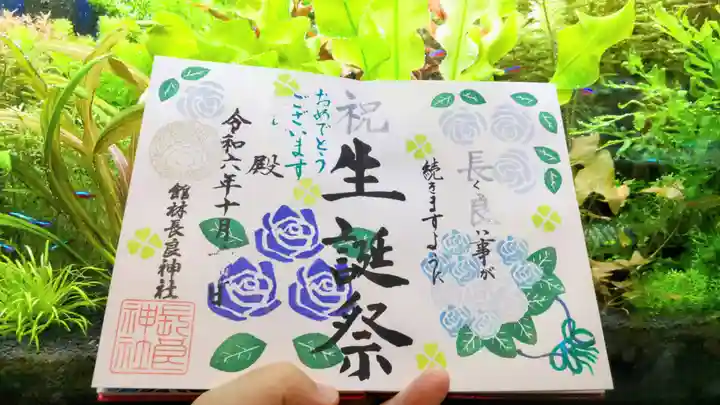 長く良い事が
続きますように
祝
生誕祭
おめでとう
ございます
殿
令和六年十月
日
館林長良神社
長良
神社